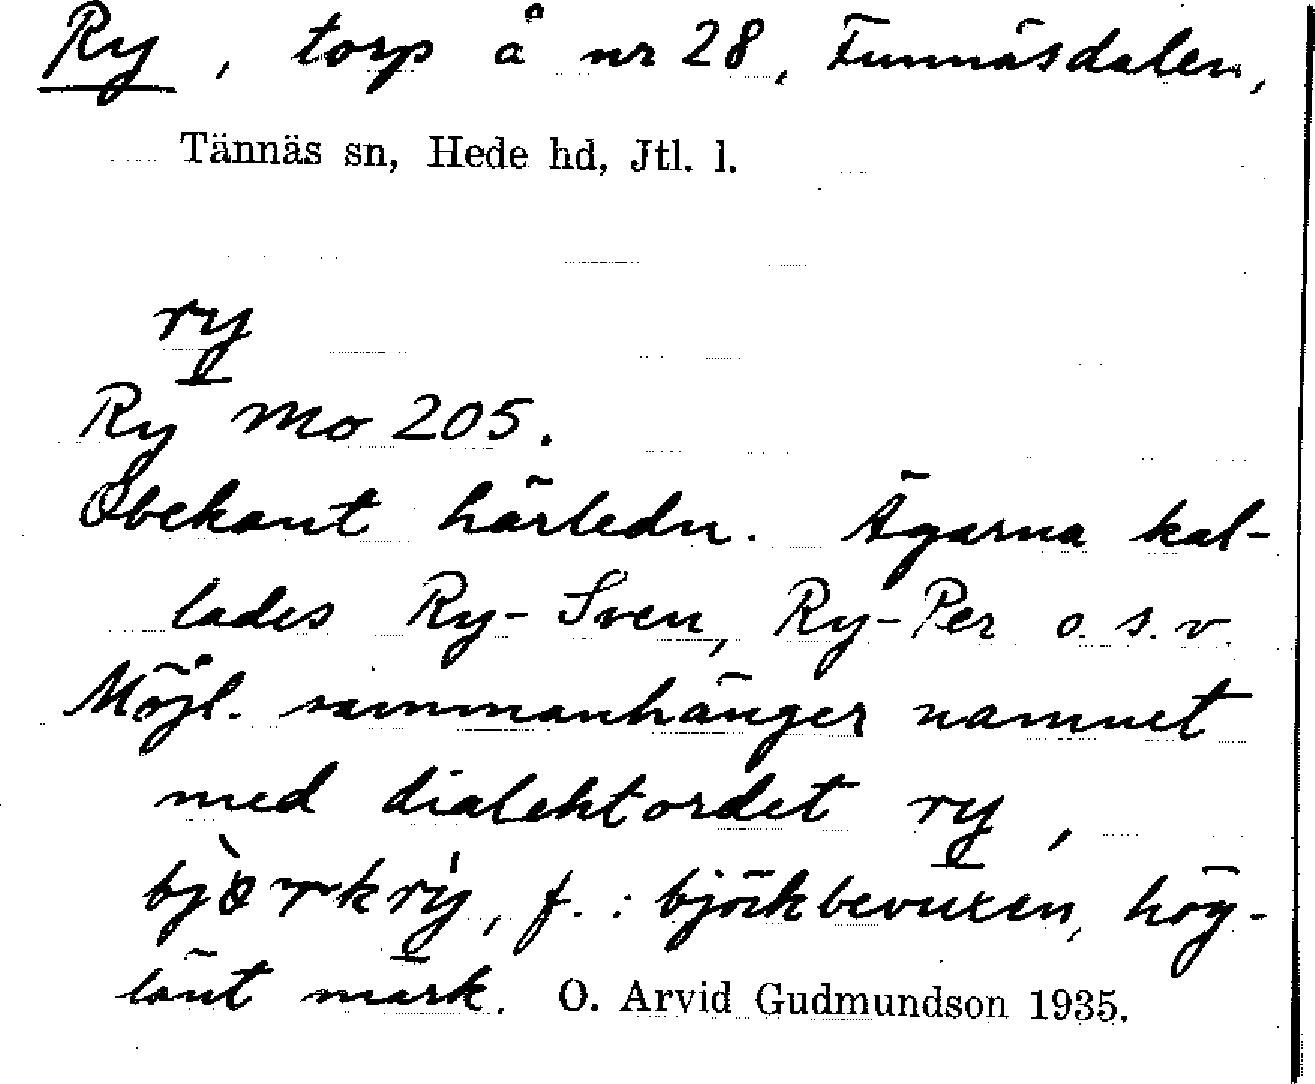 Ry, torp å nr 28, Funnäsdalen,
Tännäs sn, Hede hd, Jtl. l.
ry
Ry Mo 205.
Obekant härledn. Ägarna kal-
lades Ry-Sven, Ry-Per o.s.v.
Möjl. sammanhänger namnet
med dialektordet ry,
f.: björkbevuxen, hög-
länt mark. O. Arvid Gudmundson 1935.